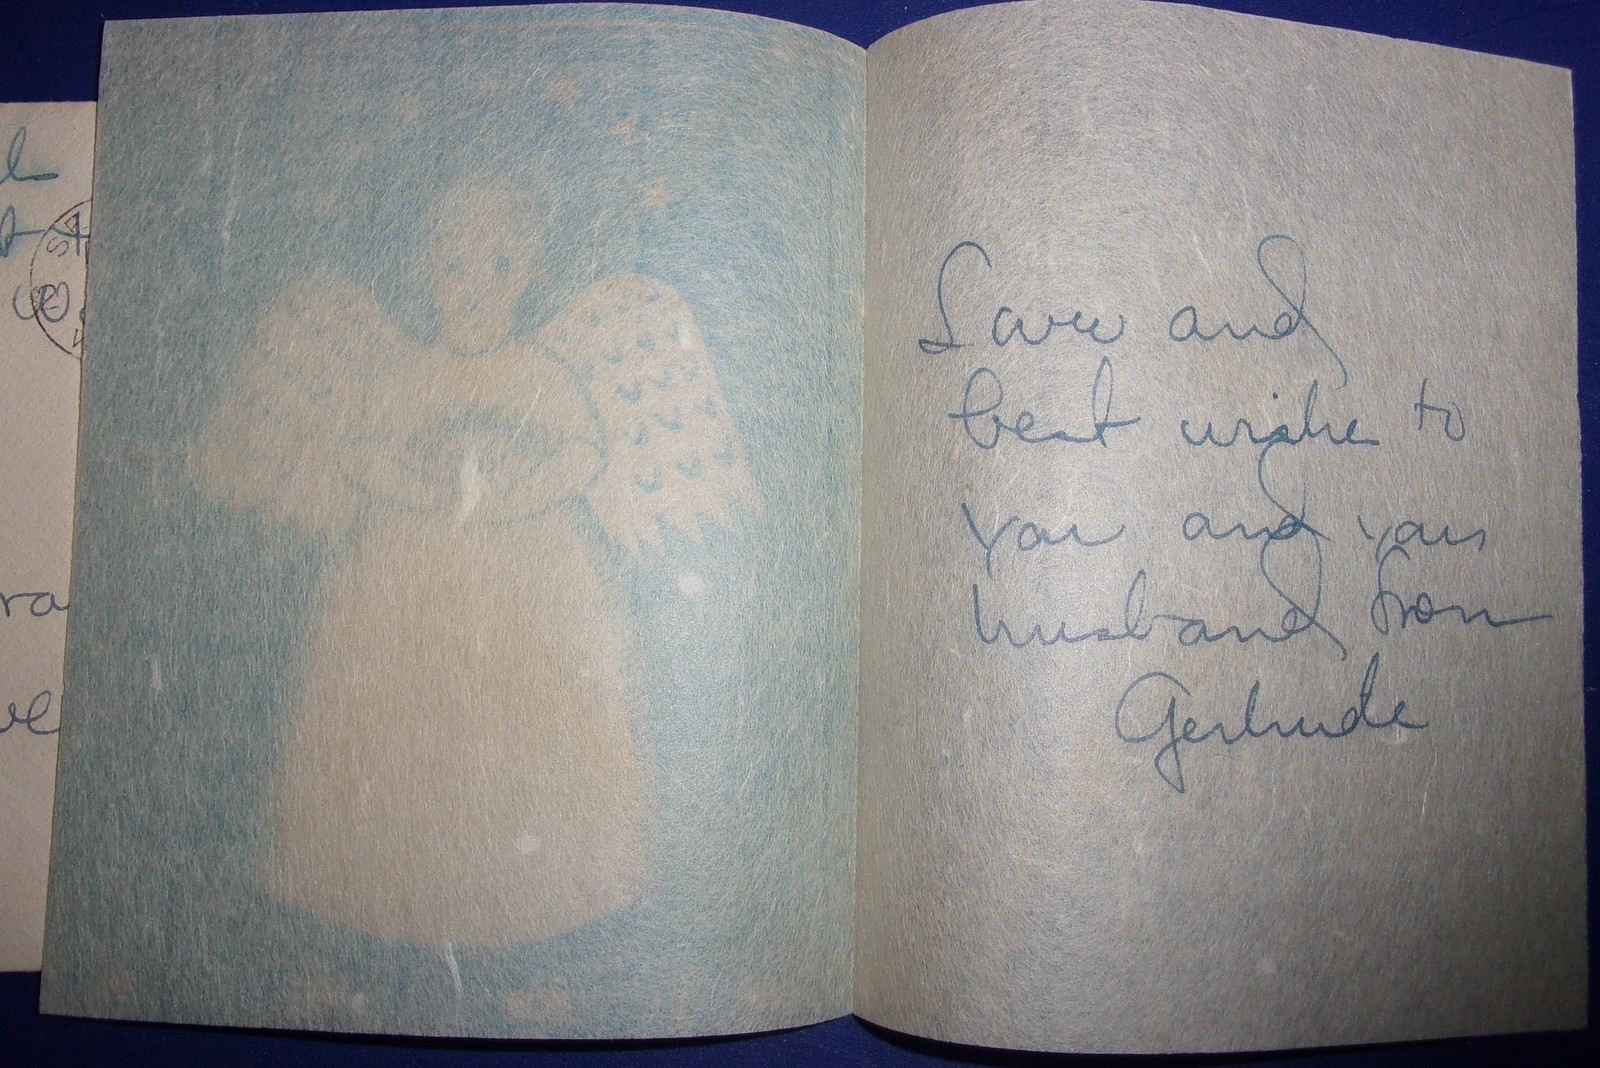 Love and
best wishe to
you and your
husband from
Gertrude
ra
ve